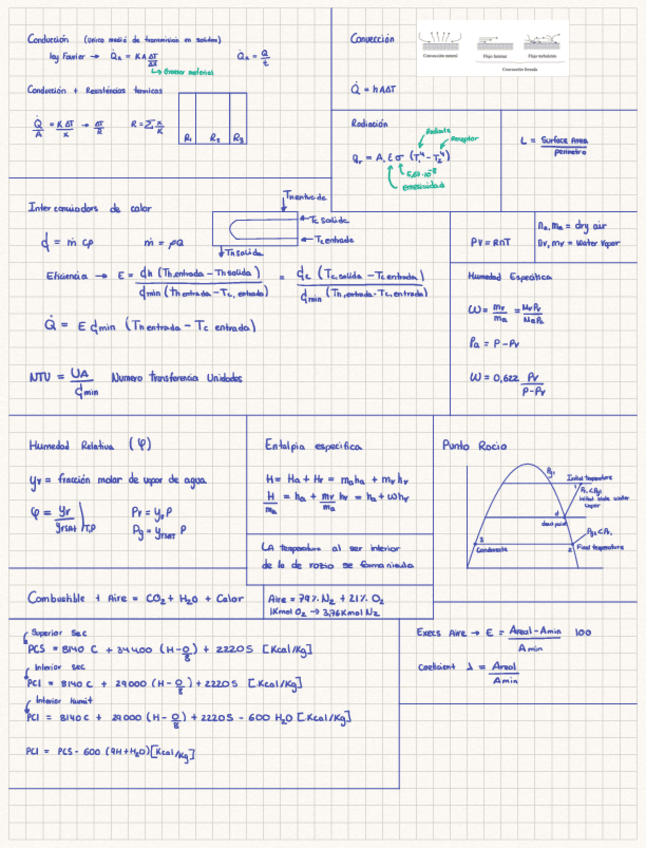 Conducción (único medio de transmisión en solidos)
ley Fourier → Q̇x = KA ΔT/Δx
Q̇x = Q/t
↳ Grosor material
Conducción + Resistencias termicas
Q̇/A = K ΔT/x → ΔT/R
R = Σ x/K
R1 R2 R3
Convección
Convección natural
Flujo laminar
Flujo turbulento
Convección forzada
Q̇ = hAΔT
Radiación
Radiante
Receptor
qr = A, ε σ (T1⁴ - T2⁴)
5,67·10⁻⁸
emisividad
L = Surface Area / perimetro
Intercanviadors de calor
ɖ = ṁ cp
ṁ = ρQ
Th entrada
Tc salida
Tc entrada
Th salida
Eficiencia → E = ɖh (Th,entrada - Th salida) / ɖmin (Th entrada - Tc, entrada) = ɖc (Tc,salida - Tc entrada) / ɖmin (Th,entrada - Tc, entrada)
Q̇ = E ɖmin (Th entrada - Tc entrada)
NTU = UA / ɖmin Numero Transferencia Unidades
PV = RnT
na, ma = dry air
nv, mv = water vapor
Humedad Específica
ω = mv/ma = MvPv/MaPa
Pa = P - Pv
ω = 0,622 Pv/(P-Pv)
Humedad Relativa (φ)
yv = fracción molar de vapor de agua
φ = yv/yv,sat )T,P
Pv = yv P
Pg = yv,sat P
Entalpia especifica
H = Ha + Hv = maha + mvhv
H/ma = ha + mv/ma hv = ha + ωhv
LA temperatura al ser inferior
de la de rozio se forma niebla
Punto Rocio
Pg1
Initial temperature
1
Pv1 < Pg1
Initial state water
vapor
d
dew point
Pg2 < Pv1
3
Condensate
2
Final temperature
Combustible + Aire = CO2 + H2O + Calor
Aire = 79% N2 + 21% O2
1Kmol O2 → 3,76Kmol N2
Superior Sec
PCS = 8140 C + 34400 (H - O/8) + 2220S [Kcal/Kg]
Inferior sec
PCI = 8140 C + 29000 (H - O/8) + 2220S [Kcal/Kg]
Inferior humit
PCI = 8140 C + 29000 (H - O/8) + 2220S - 600 H2O [Kcal/Kg]
PCI = PCS - 600 (9H+H2O) [Kcal/Kg]
Exces Aire → E = Areal - Amin / Amin 100
Coeficient λ = Areal / Amin